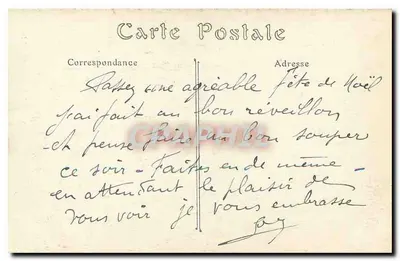 Carte Postale
Correspondance
Adresse
Passez une agréable fête de Noël
j'ai fait un bon réveillon
et pense faire un bon souper
ce soir - Faites en de même -
en attendant le plaisir de
vous voir je vous embrasse